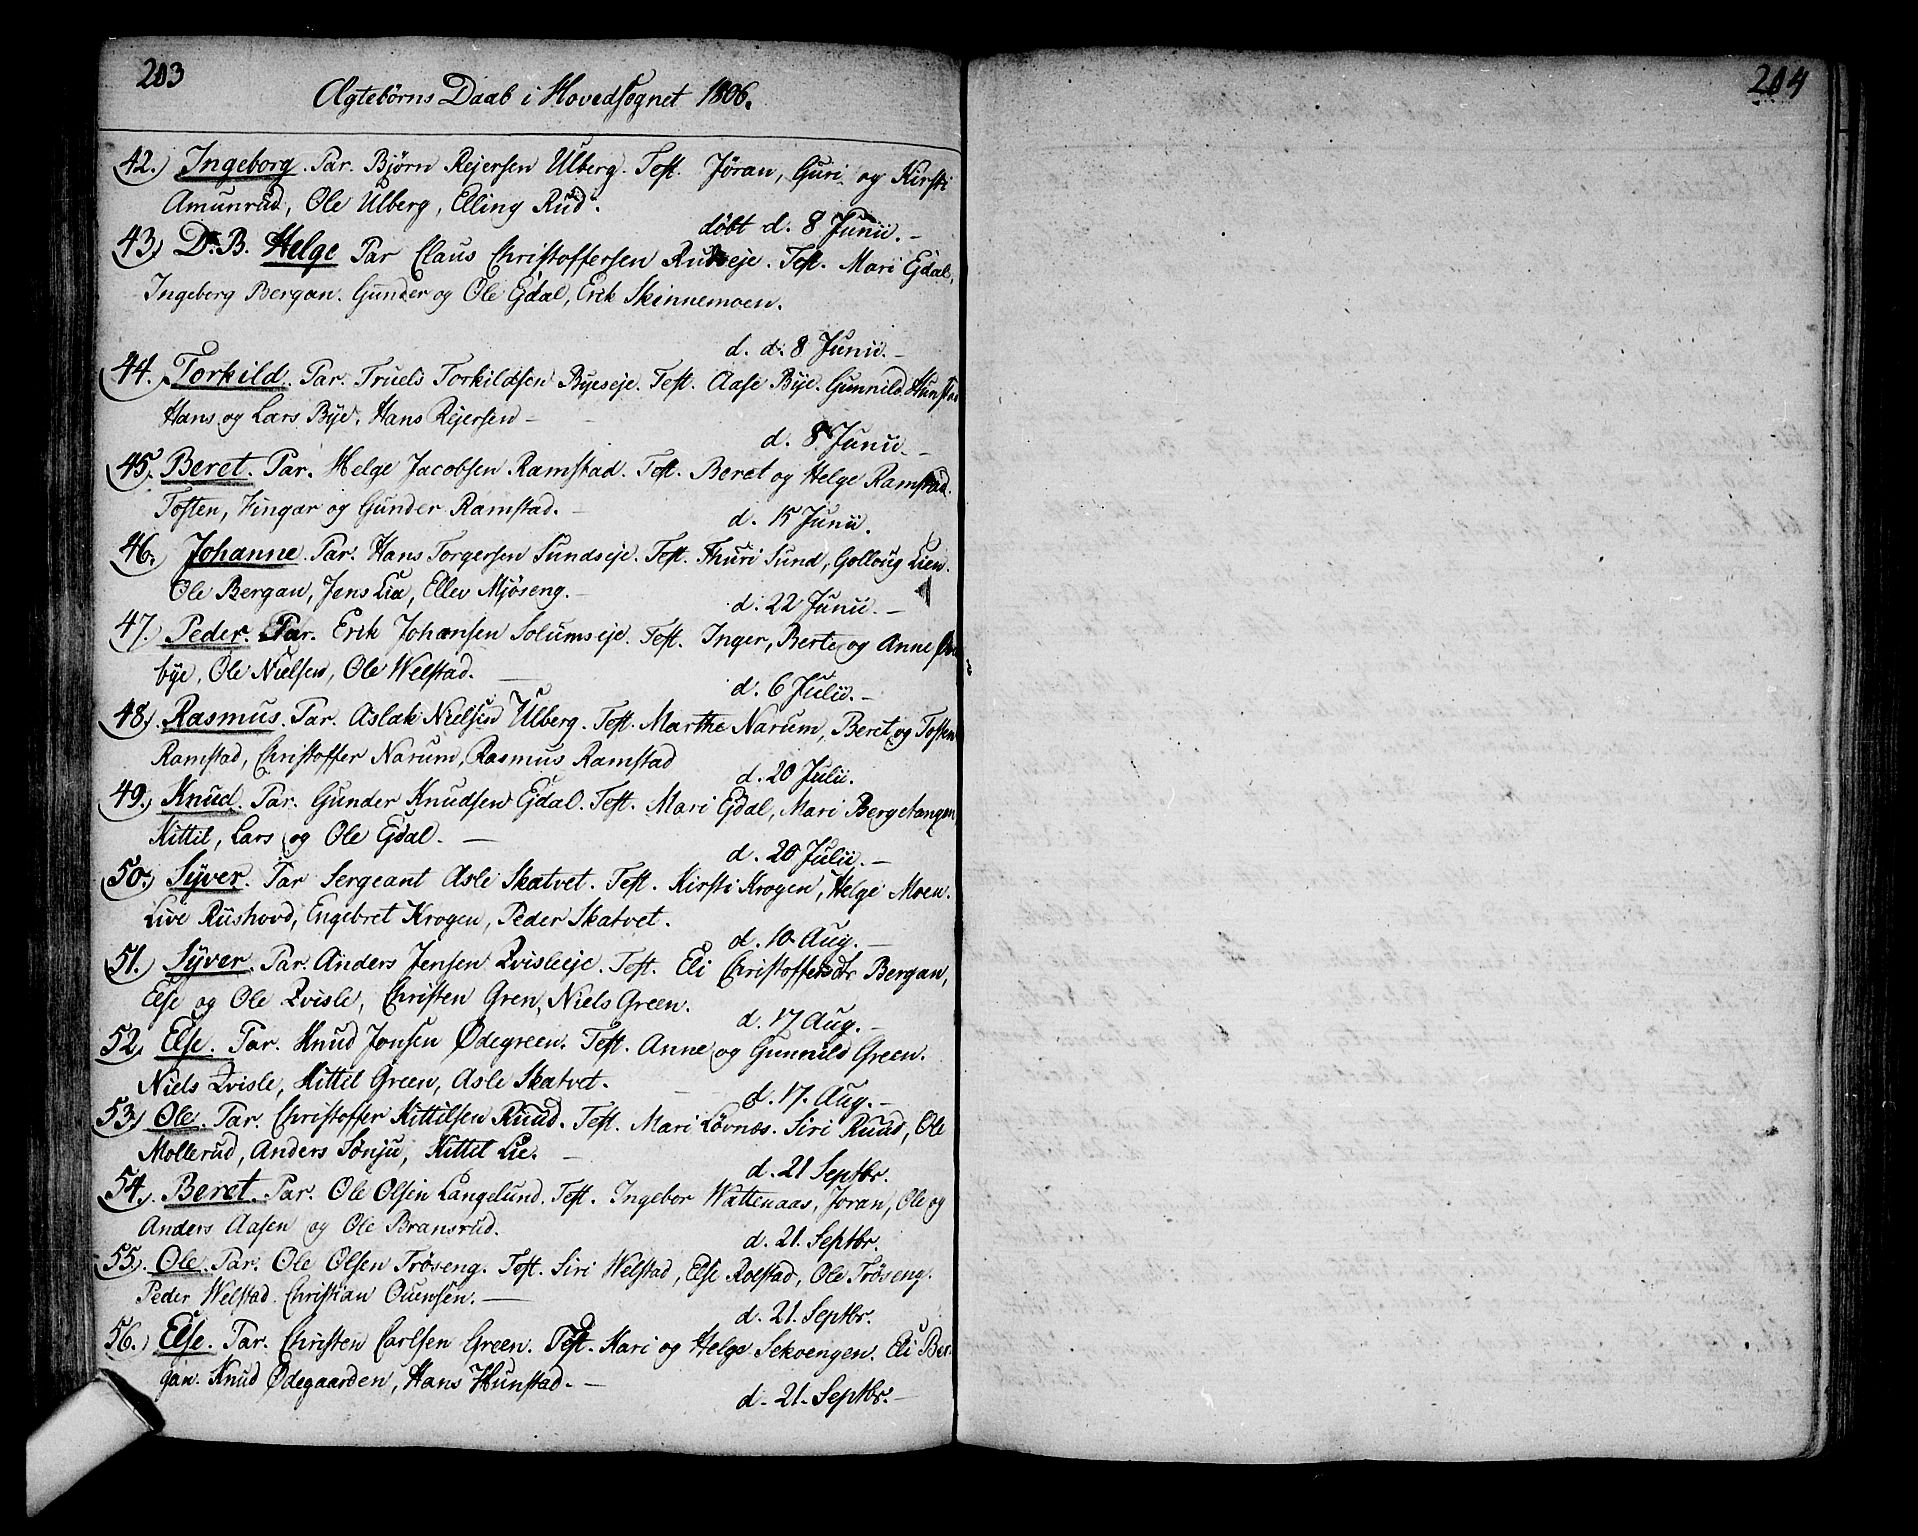 203
Ægtebørns Daab i Hovedsognet 1806.
42.) Ingeborg. Par. Bjørn Rejersen Ulberg. Test. Jøran, Guri og Kirsti
Amunrud, Ole Ulberg, Elling Rud.
døbt d. 8 Junii.–
43.) D. B. Helge Par Claus Christoffersen Rudseje. Test. Mari Ejdal,
Ingeborg Bergan. Gunder og Ole Ejdal, Erik Skinnemoen.
d. d. 8 Junii.–
44. Torkild. Par. Truels Torkildsen Byeseje. Test. Aase Bye. Gunnild Hunstad
Hans og Lars Bye. Hans Rejersen –
d. 8 Junii.–
45. Beret. Par. Helge Jacobsen Ramstad. Test. Beret og Helge Ramstad.
Tosten, Fingar og Gunder Ramstad. –
d. 15 Junii.
46. Johanne. Par. Hans Torgersen Sundseje. Test. Thuri Sund, Golloug Lien.
Ole Bergan, Jens Lia, Ellev Mjøseng. –
d. 22 Junii. –
47.) Peder. Par. Erik Johansen Solumseje. Test. Inger, Berte og Anne
bye, Ole Nielsen, Ole Welstad. –
d. 6 Julii.–
48.) Rasmus. Par. Aslak Nielsen Ulberg. Test. Marthe Narum, Beret og Tosten
Ramstad, Christoffer Narum, Rasmus Ramstad
d. 20 Julii.
49.) Knud. Par. Gunder Knudsen Ejdal. Test. Mari Ejdal, Mari Bergetangen,
Kittil, Lars og Ole Ejdal. –
d. 20 Julii.–
50.) Syver. Par Sergeant Asle Skatvet. Test. Kirsti Krogen, Helge Moen.
Live Rushovd, Engebret Krogen, Peder Skatvet.
d. 10 Aug. –
51.) Syver. Par. Anders Jensen Qvisleeje. Test. Eli Christoffersdr Bergan,
Else og Ole Qvisle, Christen Gren, Niels Green.
d. 17 Aug. –
52.) Else. Par. Knud Jonsen Ødegreen. Test. Anne og Gunnild Green.
Niels Qvisle, Kittil Green, Asle Skatvet. –
d. 17. Aug.–
53.) Ole. Par. Christoffer Kittilsen Ruud. Test. Mari Løvnæs. Siri Ruud, Ole
Mollerud, Anders Sønju, Kittil Lie. –
d. 21 Septbr.
54.) Beret. Par. Ole Olsen Langelund. Test. Ingebor Wattenaas, Joran, Ole og
Anders Aasen og Ole Bransrud.
d. 21. Septbr.
55.) Ole. Par. Ole Olsen Trøseng. Test. Siri Welstad, Else Rolstad, Ole Trøseng.
Peder Welstad. Christian Ouensen. –
d. 21. Septbr.
56.) Else. Par. Christen Carlsen Green. Test. Mari og Helge Sekvengen. Eli Ber-
gan. Knud Ødegaarden, Hans Hunstad. –
d. 21. Septbr. –
204